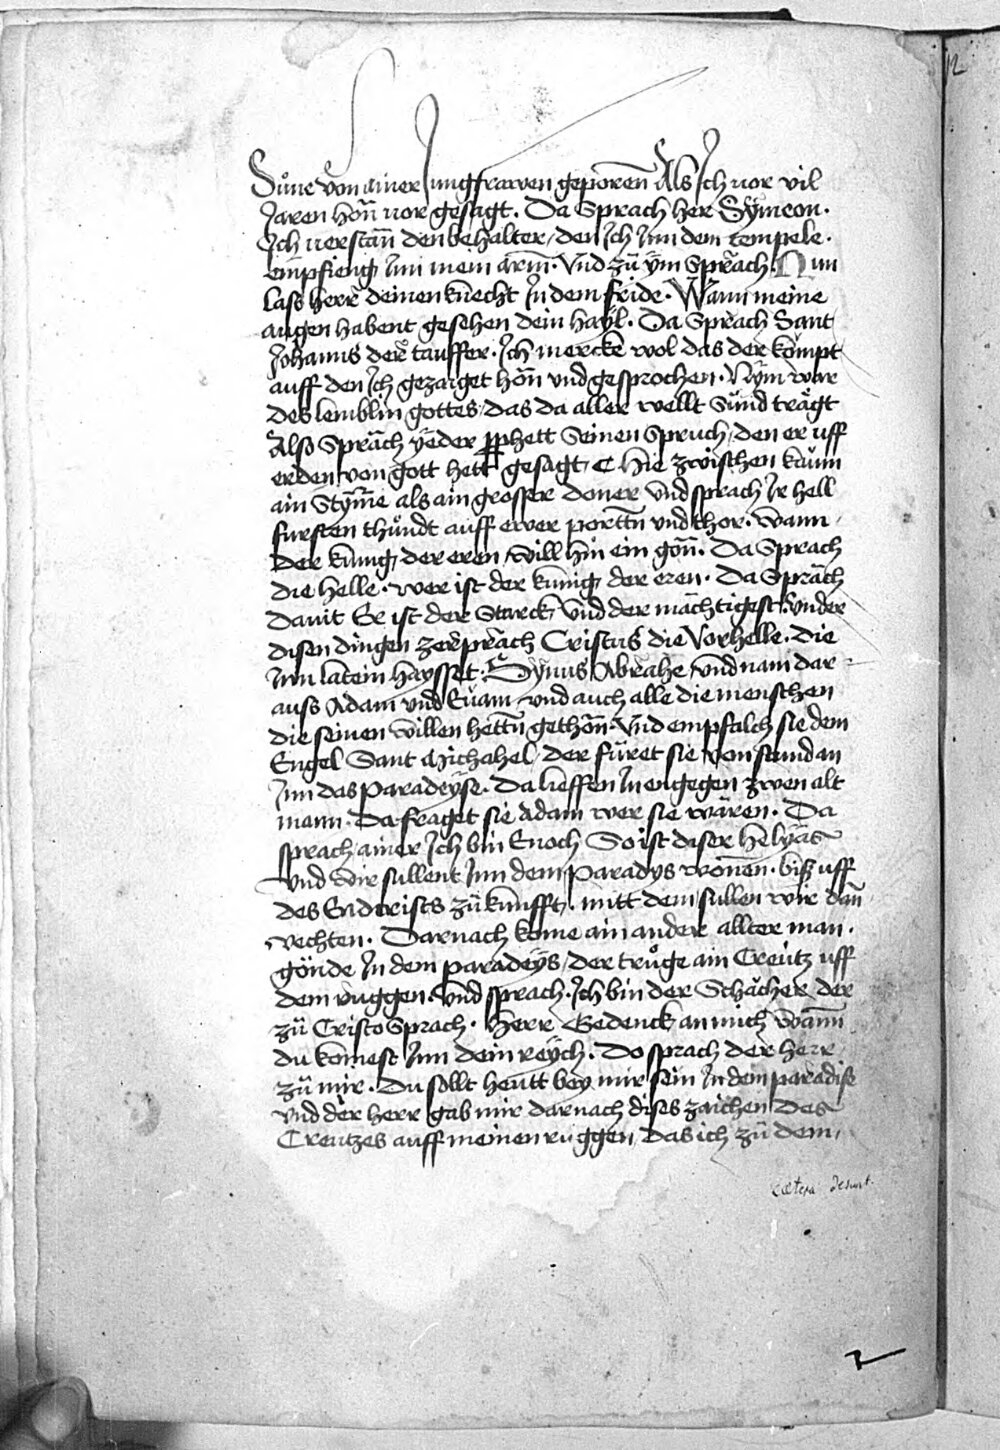 12
Sune von ainer Jungfrawen geporen Als Ich vor vil
Jaren hon vor gesagt. Da Sprach her Symeon.
Ich verstan den behalter, den Ich Inn dem tempele.
empfieng Inn mein arm. Vnd zu ym Sprach. Nun
lass herr deinen knecht In dem fride. Wann meine
augen habent gesehen dein hayl. Da Sprach Sant
Johanns der tauffer. Ich mercke wol das der kompt
auff den Ich gezaiget hon vnd gesprochen. Nym war
des lemblin gottes, das da aller wellt Sünd trägt
Also Sprach yeder pphett Seinen Spruch, den er uff
erden von gott hett gesagt, C Hie zwischen kaum
ain Stymme als ain grosser doner Vnd sprach Ir hell
fursten thundt auff ewer porttn vnd thor. Wann
der kunig der eren, will hin ein gon. Da Sprach
die helle. wer ist der kunig der eren. Da Sprach
Dauit Er ist der Starck Vnd der mächtigest. Vnder
disen dingen zerprach Cristus die Vorhelle. die
Inn latein haysset: Synus Abrahe, vnd nam dar
auss Adam vnd Euam, vnd auch alle die menschen
die seinen willen hettn gethon. Vnd empfalch sie dem
Engel Sant Michahel, der füret sie von stund an
Inn das Paradeyse. Da lieffen In engegen zwen alt
mann. Da fraget sie Adam wer sie wären. Da
sprach ainer Ich bin Enoch So ist diser Helyas
vnd wir sullent Inn dem Paradys wonen. biss uff
des Endcrists zukunfft. mitt dem sullen wir dan
vechten. Darnach kome ain ander allter man.
gönde In dem paradeys, der truge ain Creutz uff
dem ruggen. vnd sprach. Ich bin der Schächer der
zu Cristo Sprach. Herr Gedenck an mich Wann
du komest Inn dein reych. Do sprach der herr
zu mir. Du sollt heutt bey mir sein In dem paradise
vnd der herr gab mir darnach dises zaichen des
Creutzes auff meinen ruggen, das ich zu dem
Cætera desunt.
2